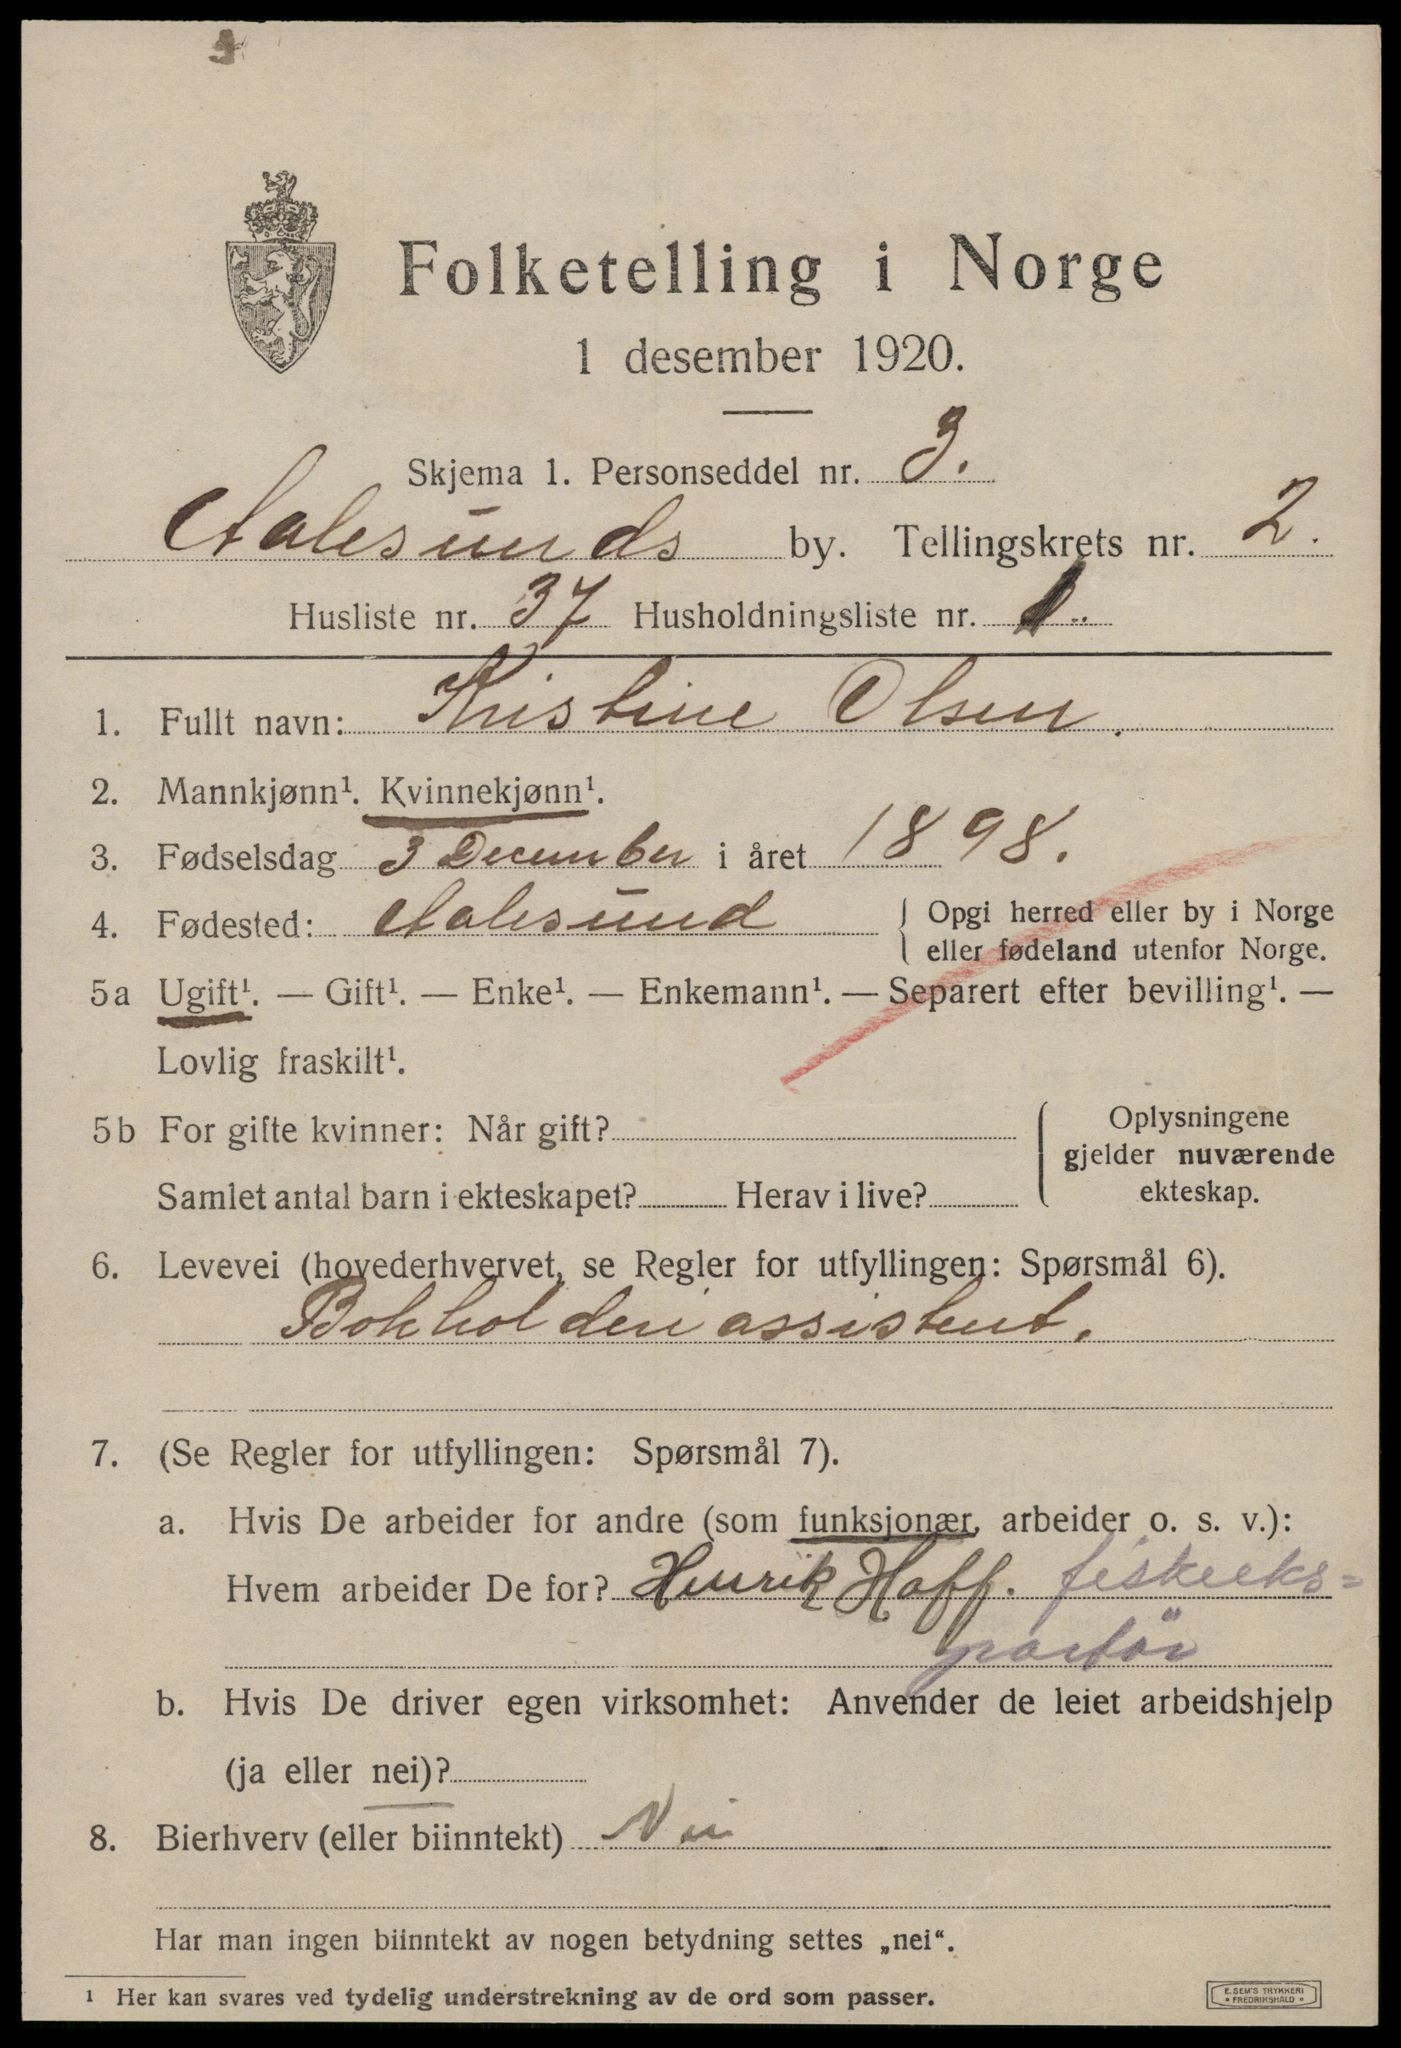 Folketelling i Norge
1 desember 1920.
Skjema 1. Personseddel nr. 3.
Aalesunds by. Tellingskrets nr. 2.
Husliste nr. 37 Husholdningsliste nr. 1.
1. Fullt navn: Kristine Olsen.
2. Mannkjønn¹. Kvinnekjønn¹.
3. Fødselsdag 3 December i året 1898.
4. Fødested: Aalesund { Opgi herred eller by i Norge
eller fødeland utenfor Norge.
5a Ugift¹. — Gift¹. — Enke¹. — Enkemann¹. — Separert efter bevilling¹. —
Lovlig fraskilt¹.
5b For gifte kvinner: Når gift? { Oplysningene
gjelder nuværende
Samlet antal barn i ekteskapet? Herav i live? ekteskap.
6. Levevei (hovederhvervet, se Regler for utfyllingen: Spørsmål 6).
Bokholderiassistent.
7. (Se Regler for utfyllingen: Spørsmål 7).
a. Hvis De arbeider for andre (som funksjonær, arbeider o. s. v.):
Hvem arbeider De for? Henrik Hoff. fiskeeks=
portør
b. Hvis De driver egen virksomhet: Anvender de leiet arbeidshjelp
(ja eller nei)?
8. Bierhverv (eller biinntekt) Nei
Har man ingen biinntekt av nogen betydning settes „nei“.
¹ Her kan svares ved tydelig understrekning av de ord som passer.
E. SEM'S TRYKKERI
• FREDRIKSHALD •